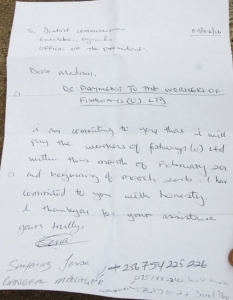 District commissioner
Entebbe, Uganda
Office of the president.
Dear Madam,
PAYMENT TO THE WORKERS OF
FISHWAYS (U) LTD
I am committing to you that I will
pay the workers of fishways (U) Ltd
within this month of February 201
and beginning of march 2016. I has
committed to you with honesty
I thankyou for your assistance
yours truly,
General manager
+256754225226